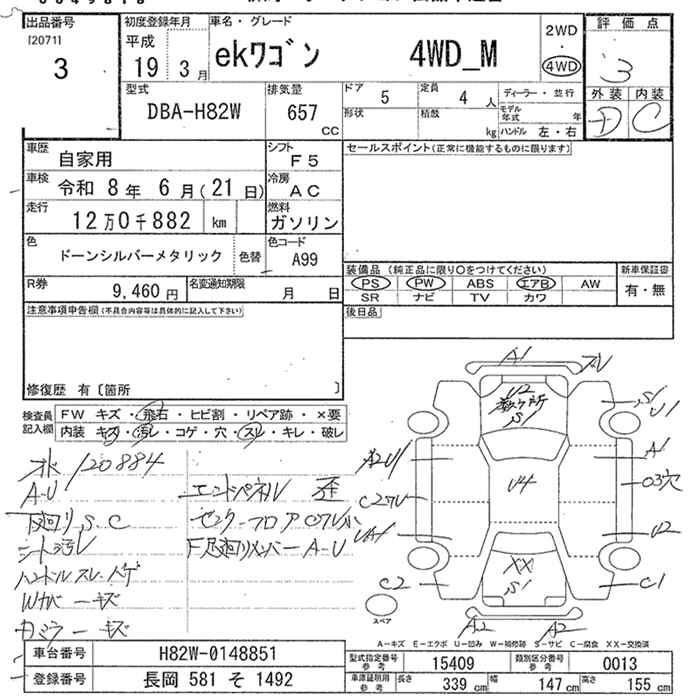 出品番号
[2071]
3
初度登録年月
平成
19 3月
車名・グレード
ekワゴン 4WD_M
2WD
・
4WD
評価点
3
外装 内装
D C
型式
DBA-H82W
排気量
657
CC
ドア 5
定員 4 人
ディーラー・並行
形状
積載 kg
モデル年式 年
ハンドル 左・右
車歴 自家用
シフト F5
セールスポイント(正常に機能するものに限ります)
車検 令和 8年 6月(21日)
冷房 AC
走行 12万0千882 km
燃料 ガソリン
色 ドーンシルバーメタリック 色替
色コード A99
装備品 (純正品に限り○をつけてください)
新車保証書
PS PW ABS エアB AW
有・無
SR ナビ TV カワ
R券 9,460円
名変通知期限 月 日
後日品
注意事項申告欄(不具合内容等は具体的に記入して下さい)
修復歴 有〔箇所 〕
検査員記入欄
FW キズ・飛石・ヒビ割・リペア跡・×要
内装 キズ・汚レ・コゲ・穴・スレ・キレ・破レ
120884
A-U
エンドパネル 歪
下廻り S.C
センターフロア
シート汚レ
F足廻りメンバー A-U
ハンドルスレ・ハゲ
Wカバーキズ
A1
U2
S1
S1
U1
A2U1
A1
U4
03穴
U2
XX
S1
C2
C1
スペア
A2
A2
A-キズ E-エクボ U-凹み W-補修跡 S-サビ C-腐食 XX-交換済
車台番号 H82W-0148851
登録番号 長岡 581 そ 1492
型式指定番号 参考 15409
類別区分番号 参考 0013
車庫証明用 参考 長さ 339 cm 幅 147 cm 高さ 155 cm